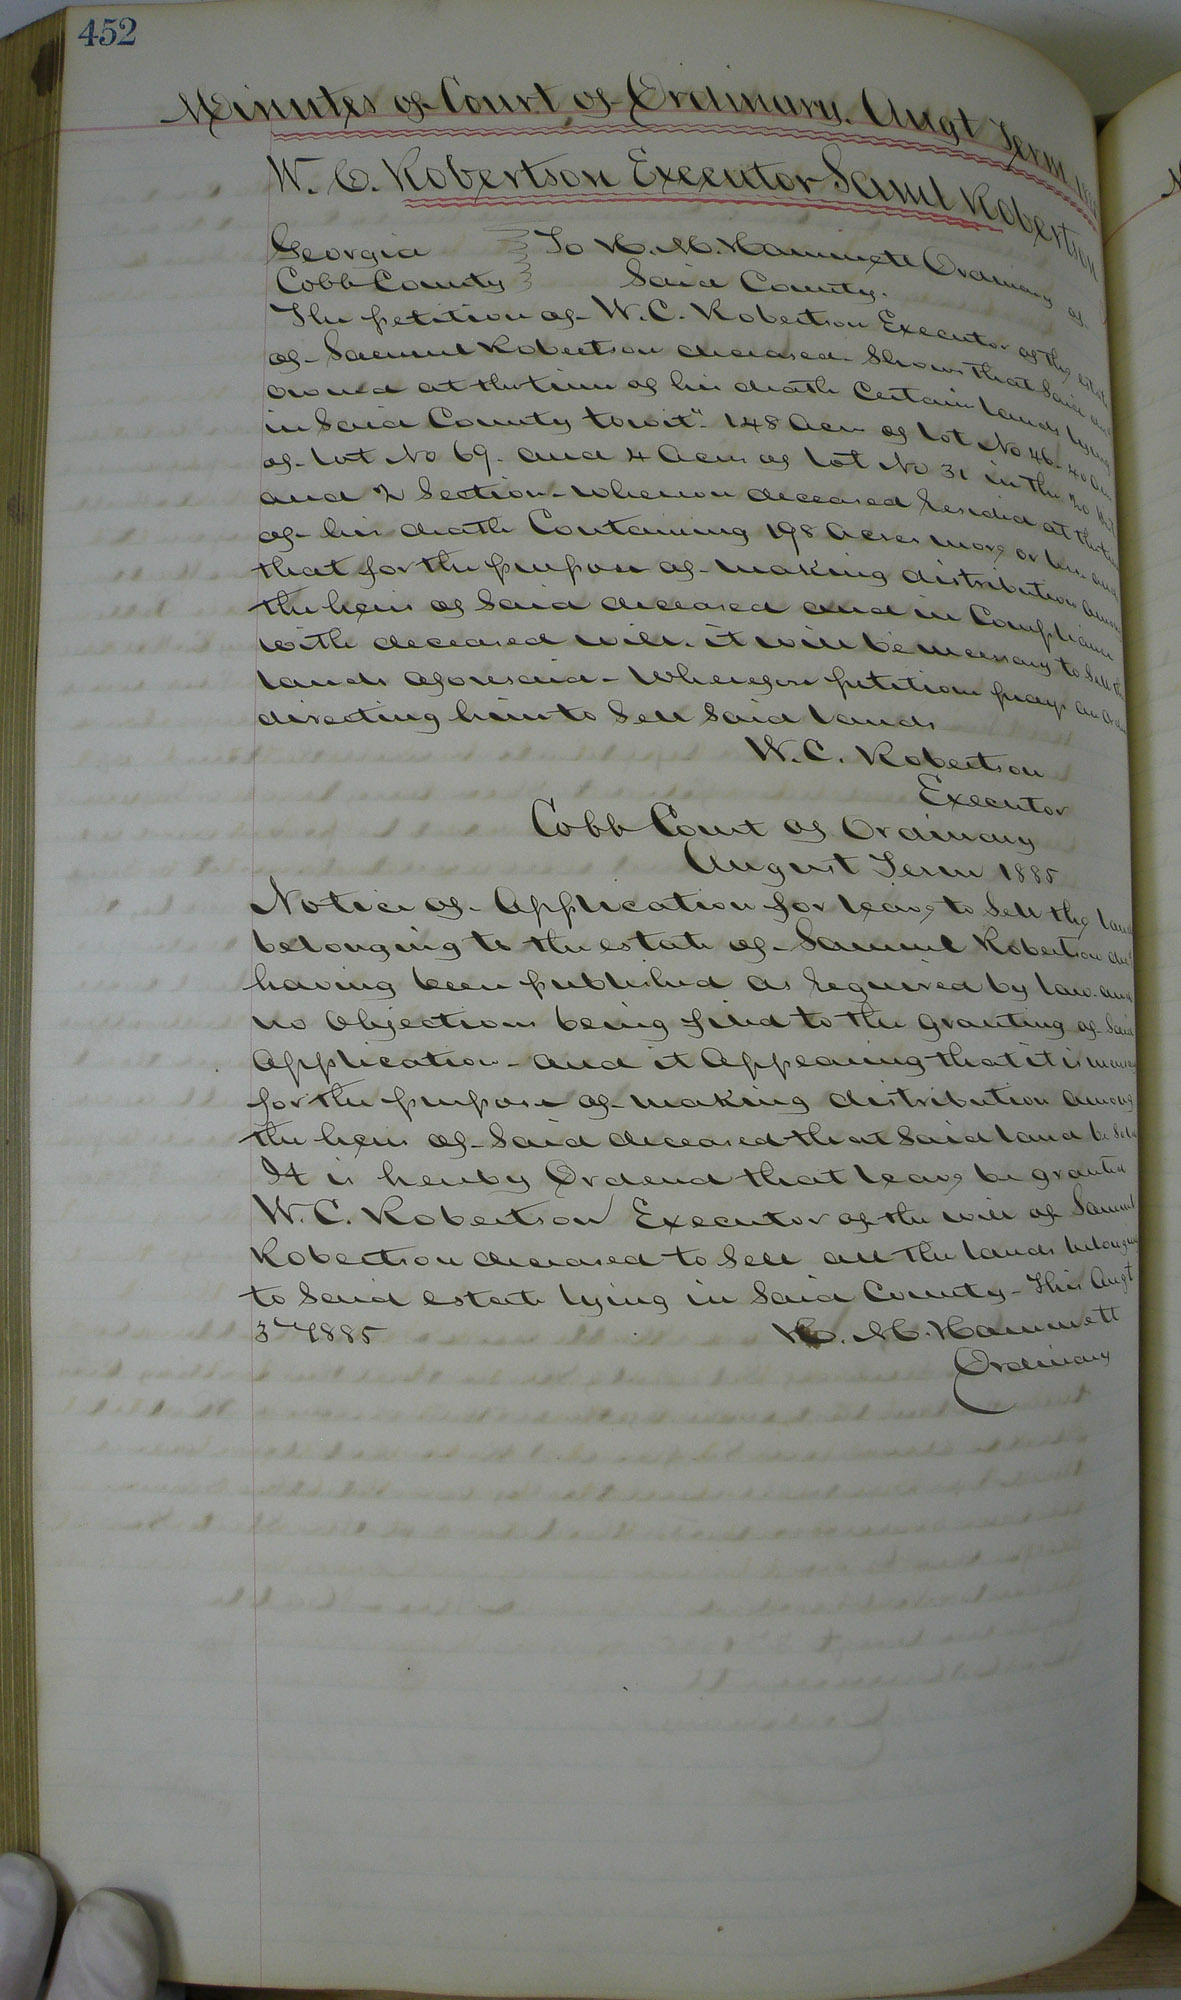 452
Minutes of Court of Ordinary. Augt Term
W. C. Robertson Executor Saml Robertson
Georgia To H. M. Hammett Ordinary of
Cobb County Said County.
The petition of W. C. Robertson Executor of the estate
of Samuel Robertson deceased Shows that Said
owned at the time of his death Certain lands lying
in Said County towit" 148 Acres of lot No 46. 40 acres
of lot No 69. and 4 Acres of lot No 31 in the 20 Dist
and 2 Section whereon deceased resided at the time
of his death Containing 198 Acres more or less and
that for the purpose of making distribution among
the heirs of Said deceased and in Compliance
with deceased will. it will be necessary to Sell the
lands aforesaid Wherefore petition prays an order
directing him to Sell Said lands
W. C. Robertson
Executor
Cobb Court of Ordinary
August Term 1885
Notice of Application for leave to Sell the land
belonging to the estate of Samuel Robertson decd
having been published as required by law and
no objections being filed to the granting of Said
Application and it Appearing that it is necessary
for the purpose of making distribution among
the heirs of Said deceased that Said land be Sold
It is hereby Ordered that leave be granted
W. C. Robertson Executor of the will of Samuel
Robertson deceased to Sell all the lands belonging
to Said estate lying in Said County This Augt
3rd 1885 H. M. Hammett
Ordinary